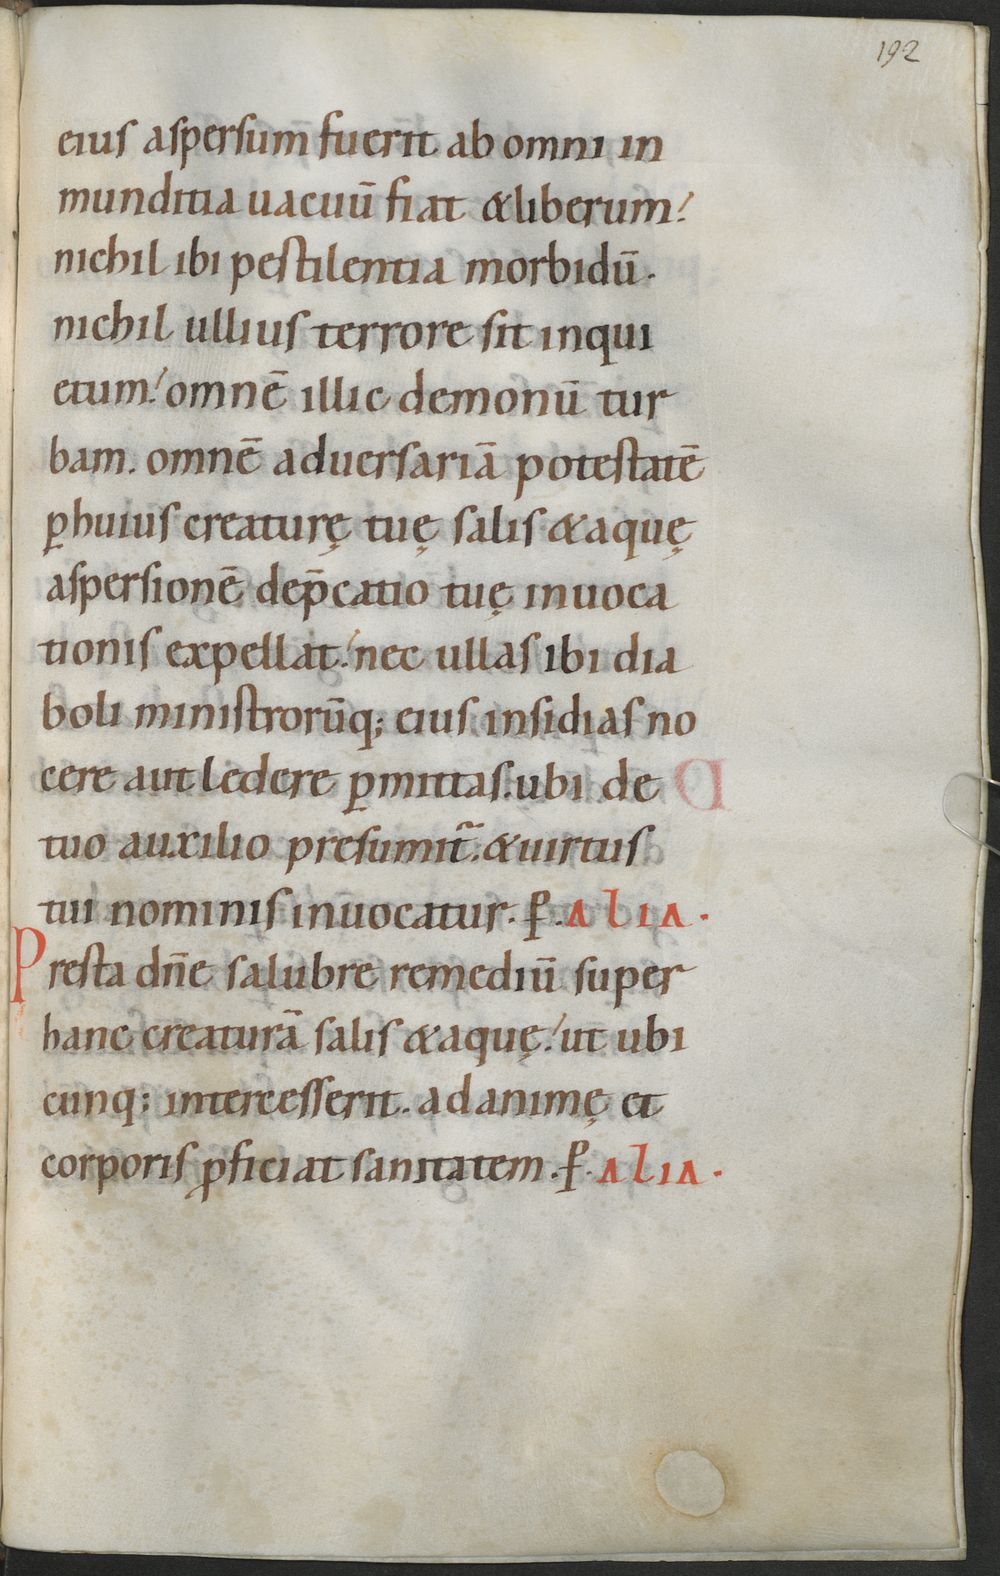 192
eius aspersum fuerit ab omni in
munditia uacuū fiat &liberum!
nichil ibi pestilentia morbidū.
nichil ullius terrore sit inqui
etum! omnē illic demonū tur
bam. omnē aduersariā potestatē
ꝑ huius creaturę tuę salis & aquę
aspersionē dep̄catio tuę inuoca
tionis expellat! nec ullas ibi dia
boli ministrorūq; eius insidias no
cere aut ledere ꝑmittas. ubi de
tuo auxilio presumit᷑. & uirtus
tui nominis inuocatur. ꝑ. ALIA.
Presta dn̄e salubre remediū super
hanc creaturā salis & aquę! ut ubi
cunq; intercesserit. ad animę et
corporis ꝓficiat sanitatem. ꝑ. ALIA.